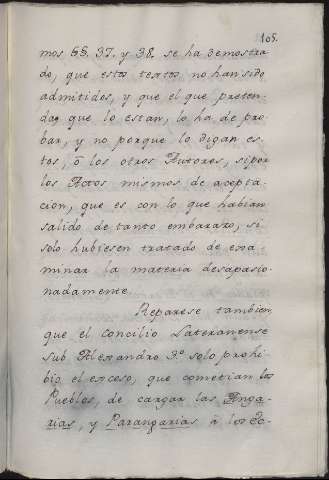 105.
mos §§. 37. y 38. se ha demostra-
do, que estos textos no han sido
admitidos, y que el que preten-
da, que lo estan, lo ha de pro-
bar, y no porque lo digan es-
tos, ò los otros Autores, si por
los Actos mismos de acepta-
cion, que es con lo que habian
salido de tanto embarazo, si
solo hubiesen tratado de exa-
minar la materia desapasio-
nadamente.
Reparese tambien
que el Concilio Lateranense
sub Alexandro 3.º solo prohi-
bio el exceso, que cometian los
Pueblos, de cargar las Anga-
rias, y Parangarias à los Ec-